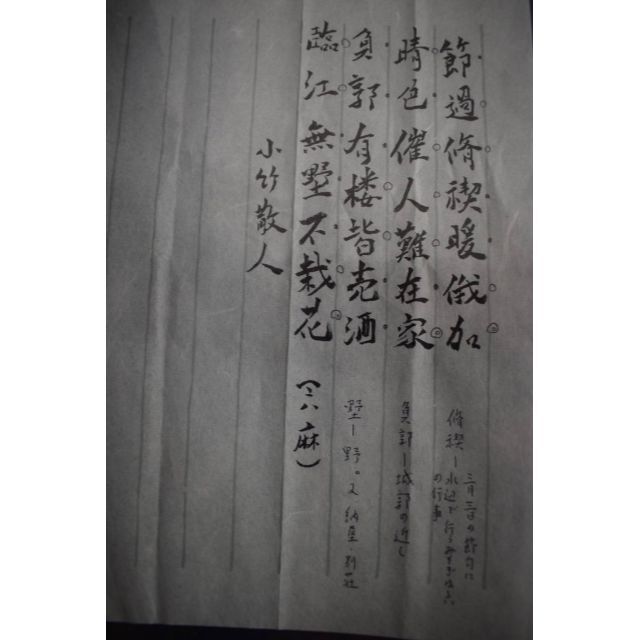 節過脩禊暖俄加
晴色催人難在家
負郭有楼皆売酒
臨江無墅不栽花
小竹散人
(下八麻)
脩禊ー三月三日の節句に
水辺で行うみそぎはらい
の行事
負郭ー城郭の近し
墅ー野。又納屋・別荘